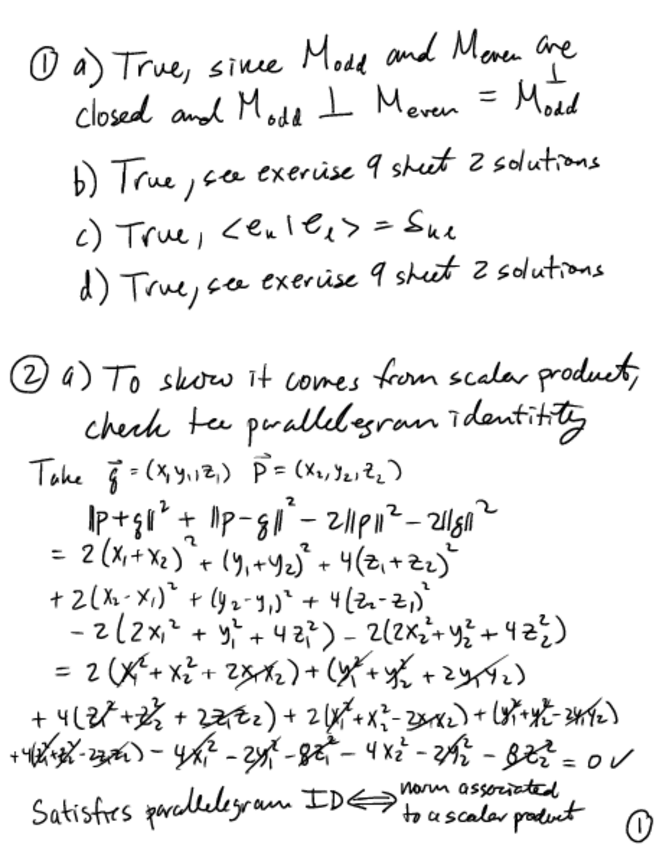 ① a) True, since M_odd and M_even are
closed and M_odd ⊥ M_even = M_odd^⊥
b) True, see exercise 9 sheet 2 solutions
c) True, <e_k|e_l> = δ_kl
d) True, see exercise 9 sheet 2 solutions
② a) To show it comes from scalar product,
check the parallelegram identitity
Take q⃗ = (x₁,y₁,z₁) p⃗ = (x₂,y₂,z₂)
||p+q||² + ||p-q||² - 2||p||² - 2||q||²
= 2(x₁+x₂)² + (y₁+y₂)² + 4(z₁+z₂)²
+ 2(x₂-x₁)² + (y₂-y₁)² + 4(z₂-z₁)²
- 2(2x₁² + y₁² + 4z₁²) - 2(2x₂²+y₂²+4z₂²)
= 2(x₁²+x₂²+2x₁x₂)+(y₁²+y₂²+2y₁y₂)
+ 4(z₁²+z₂²+2z₁z₂)+2(x₁²+x₂²-2x₁x₂)+(y₁²+y₂²-2y₁y₂)
+4(z₁²+z₂²-2z₂z₁) - 4x₁² - 2y₁² - 8z₁² - 4x₂² - 2y₂² - 8z₂² = 0 ✓
Satisfies parallelegram ID ⟺ norm associated
to a scalar product
①